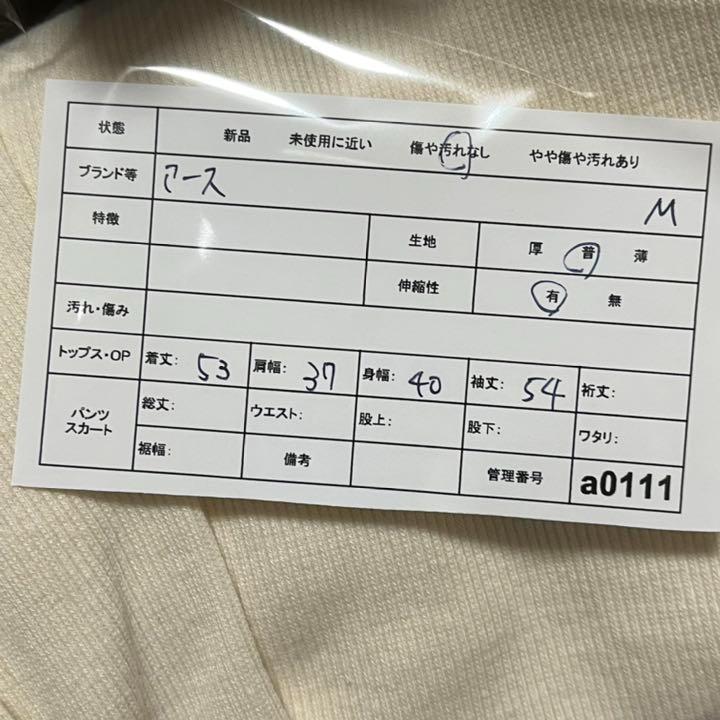 状態 新品 未使用に近い 傷や汚れなし やや傷や汚れあり
ブランド等 アース M
特徴 生地 厚 普 薄
伸縮性 有 無
汚れ・傷み
トップス・OP 着丈: 53 肩幅: 37 身幅: 40 袖丈: 54 裄丈:
パンツ スカート 総丈: ウエスト: 股上: 股下: ワタリ:
裾幅: 備考 管理番号 a0111